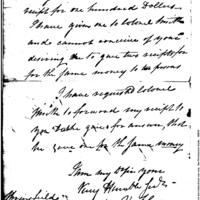 receipt for one hundred Dollars
I have given one to Colonel Smith
and cannot conceive of your
desiring me to give two receipts for
for the same money to two persons
I have requested Colonel
Smith to forward my receipt to
you gives for answer, that
he gave one for the same money
I am my Dr Sir yours
Very Humble